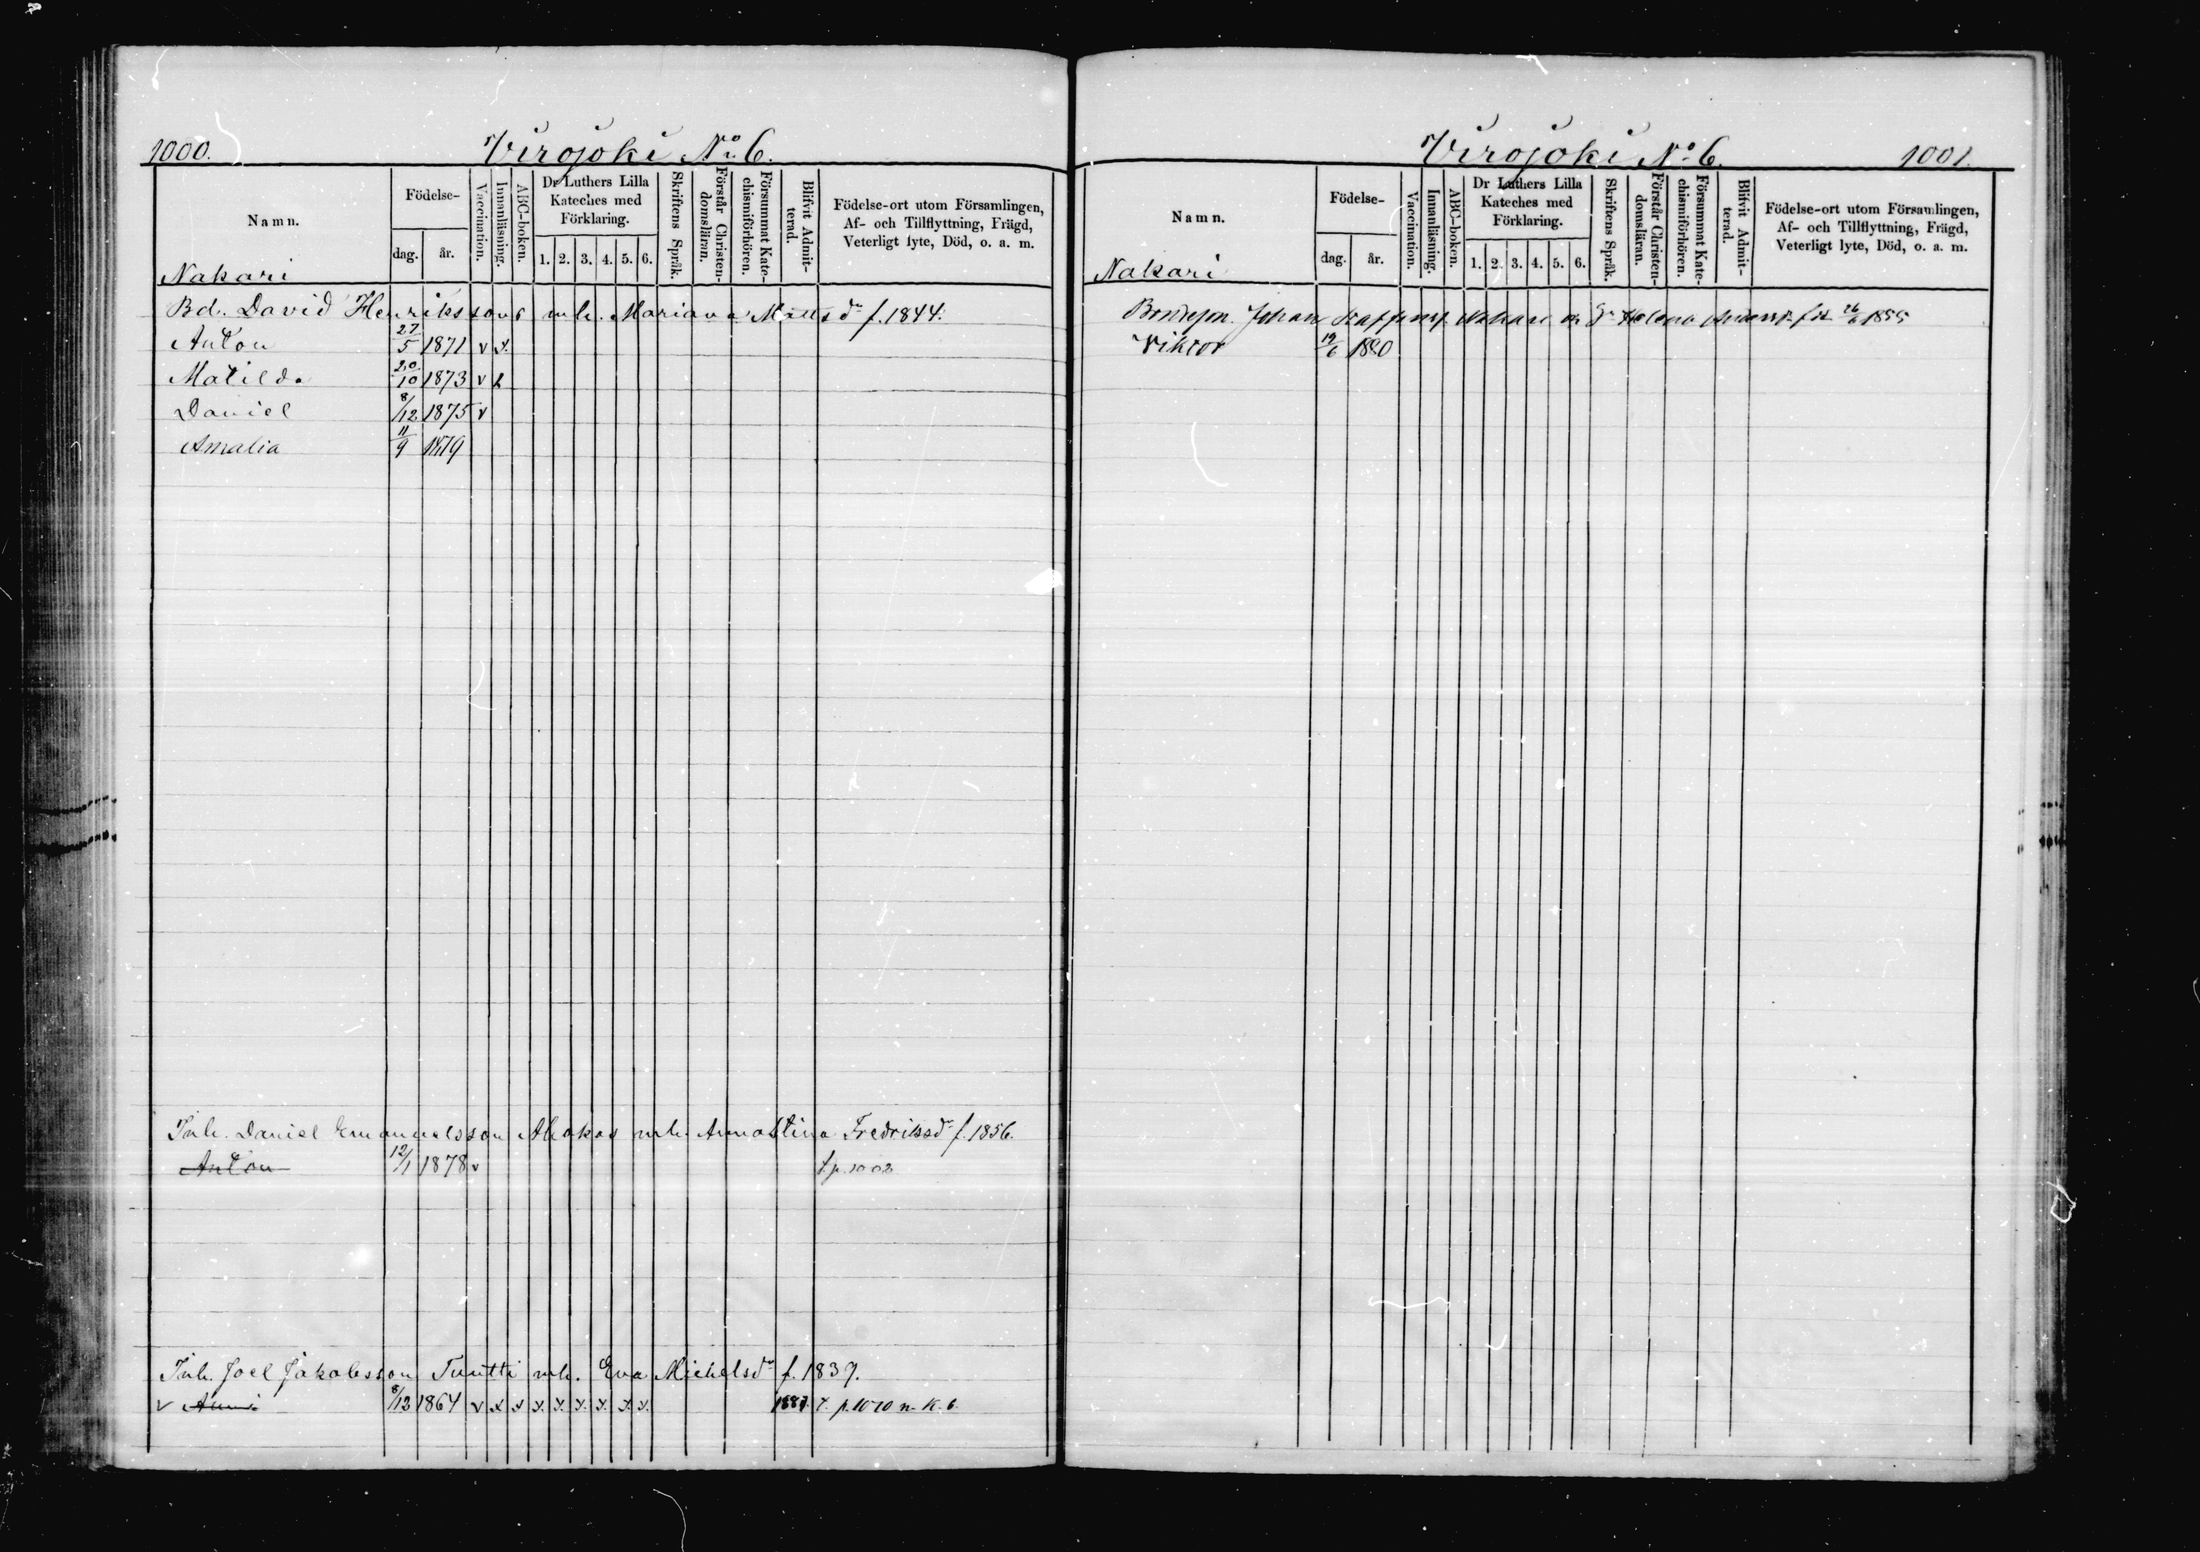 1000.
Virojoki No 6.
Namn.
Födelse-
dag.
år.
Vaccination.
Innanläsning.
ABC-boken.
Dr Luthers Lilla
Kateches med
Förklaring.
1. 2. 3. 4. 5. 6.
Skriftens Språk.
Förstår Christen-
domsläran.
Försummat Kate-
chismiförhören.
Blifvit Admit-
terad.
Födelse-ort utom Församlingen,
Af- och Tillflyttning, Frägd,
Veterligt lyte, Död, o. a. m.
Nakari
Bd. David Henrikssons mh. Mariana Matts dr f. 1844.
Anton 27/5 1871 v x.
Matilda 20/10 1873 v
Daniel 8/12 1875 v
Amalia 11/9 1879
Inh. Daniel Emanuelsson Ahokas mh. Anna Stina Fredriksdr f. 1856.
Anton 12/1 1878 v t. p. 1002
Inh. Joel Jakobsson Tuutti mh. Eva Michelsdr f. 1837.
v 8/12 1864 v x x x. x. x. x. x x. t. p. 1010 n. K. 6.
Virojoki No 6.
1001.
Namn.
Födelse-
dag.
år.
Vaccination.
Innanläsning.
ABC-boken.
Dr Luthers Lilla
Kateches med
Förklaring.
1. 2. 3. 4. 5. 6.
Skriftens Språk.
Förstår Christen-
domsläran.
Försummat Kate-
chismiförhören.
Blifvit Admit-
terad.
Födelse-ort utom Församlingen,
Af- och Tillflyttning, Frägd,
Veterligt lyte, Död, o. a. m.
Nakari
Bondeson Johan Nakari Helena 1855
Viktor 19/6 1880